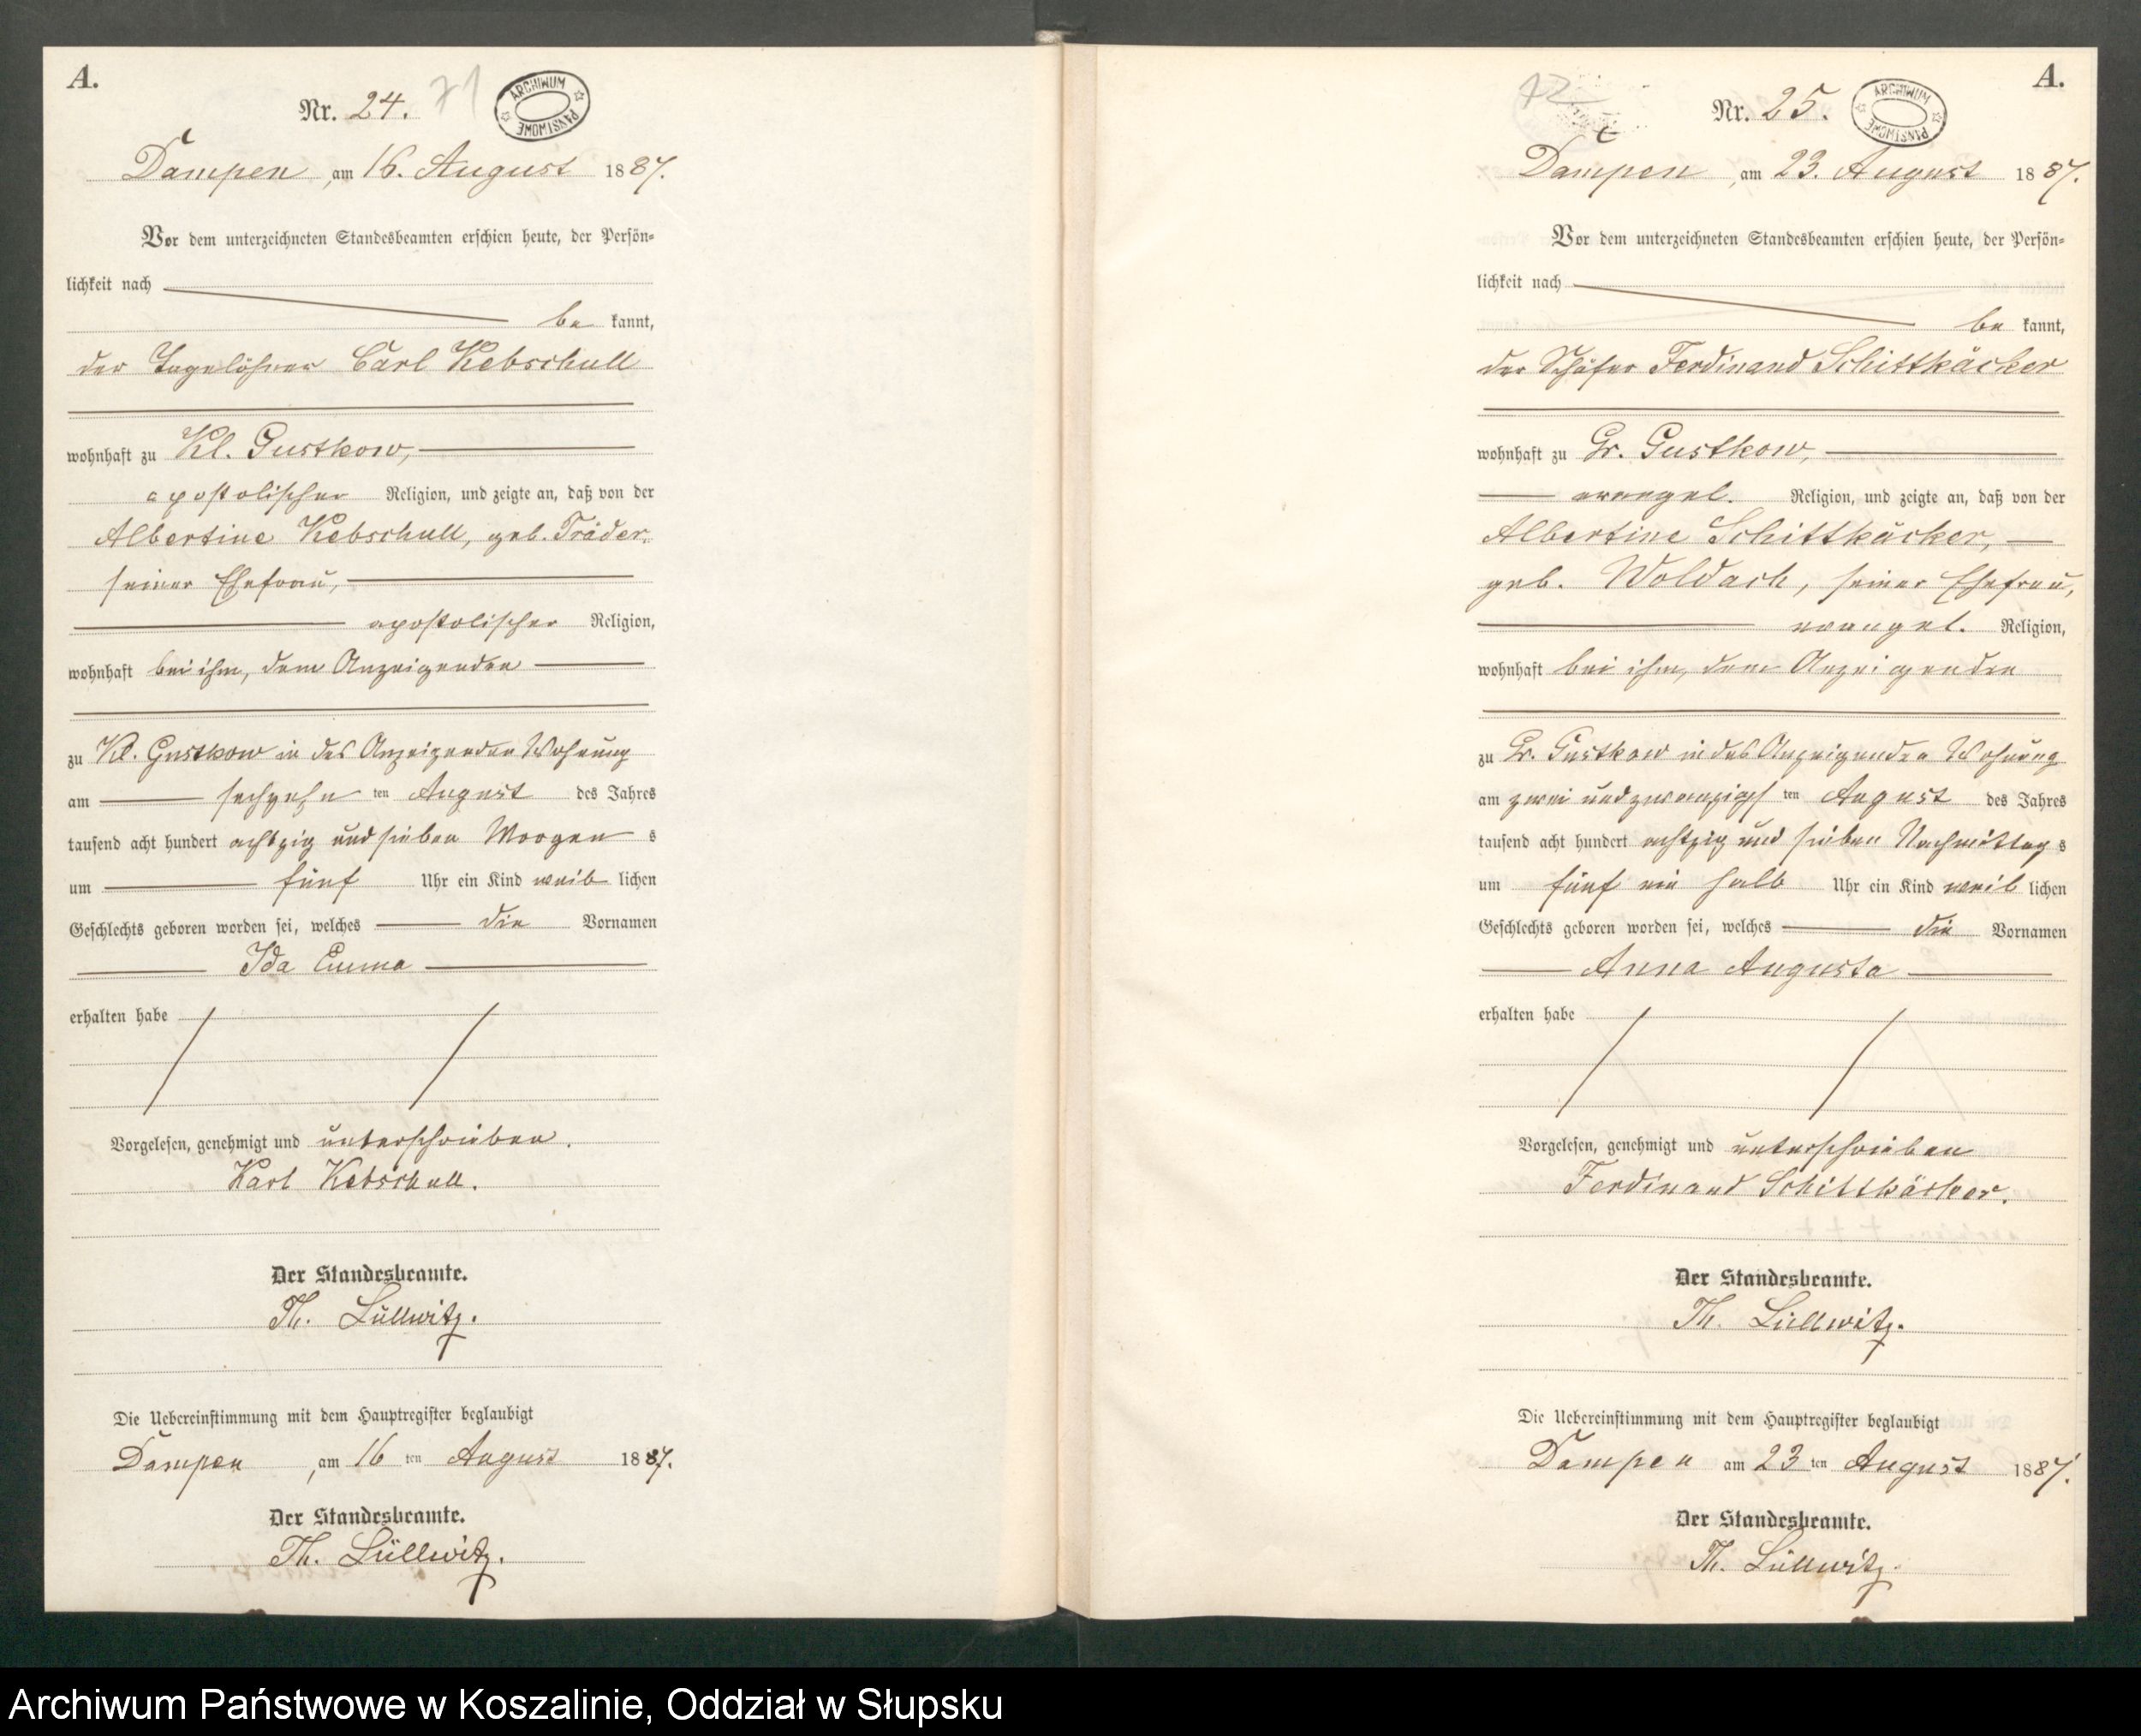 A.
Nr. 24. 71
ARCHIWUM PAŃSTWOWE
Dampen, am 16. August 1887.
Vor dem unterzeichneten Standesbeamten erschien heute, der Persön-
lichkeit nach
be kannt,
der Tagelöhner Carl Kebschull
wohnhaft zu Kl. Gustkow,
apostolischer Religion, und zeigte an, daß von der
Albertine Kebschull, geb. Träder,
seiner Ehefrau,
apostolischer Religion,
wohnhaft bei ihm, dem Anzeigenden
zu Kl. Gustkow in des Anzeigenden Wohnung
am sechzehn ten August des Jahres
tausend acht hundert achtzig und sieben Morgen s
um fünf Uhr ein Kind weib lichen
Geschlechts geboren worden sei, welches die Vornamen
Ida Emma
erhalten habe
Vorgelesen, genehmigt und unterschrieben.
Karl Kebschull.
Der Standesbeamte.
Th. Lüllwitz.
Die Uebereinstimmung mit dem Hauptregister beglaubigt
Dampen, am 16 ten August 1887.
Der Standesbeamte.
Th. Lüllwitz.
A.
72 Nr. 25.
ARCHIWUM PAŃSTWOWE
Dampen, am 23. August 1887.
Vor dem unterzeichneten Standesbeamten erschien heute, der Persön-
lichkeit nach
be kannt,
der Schäfer Ferdinand Schittkäcker
wohnhaft zu Gr. Gustkow,
evangel. Religion, und zeigte an, daß von der
Albertine Schittkäcker,
geb. Woldach, seiner Ehefrau,
evangel. Religion,
wohnhaft bei ihm, dem Anzeigenden
zu Gr. Gustkow in des Anzeigenden Wohnung
am zwei und zwanzigs ten August des Jahres
tausend acht hundert achtzig und sieben Nachmittag s
um fünf ein halb Uhr ein Kind weib lichen
Geschlechts geboren worden sei, welches die Vornamen
Anna Augusta
erhalten habe
Vorgelesen, genehmigt und unterschrieben
Ferdinand Schittkäcker.
Der Standesbeamte.
Th. Lüllwitz.
Die Uebereinstimmung mit dem Hauptregister beglaubigt
Dampen am 23 ten August 1887.
Der Standesbeamte.
Th. Lüllwitz.
Archiwum Państwowe w Koszalinie, Oddział w Słupsku